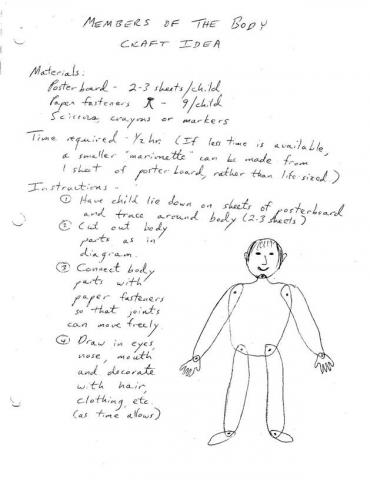 MEMBERS OF THE BODY
CRAFT IDEA
Materials:
Posterboard - 2-3 sheets/child
Paper fasteners - 9/child
Scissors, crayons or markers
Time required - 1/2 hr. (If less time is available,
a smaller "marionette" can be made from
1 sheet of posterboard, rather than life-sized)
Instructions -
① Have child lie down on sheets of posterboard
and trace around body (2-3 sheets)
② Cut out body
parts as in
diagram.
③ Connect body
parts with
paper fasteners
so that joints
can move freely
④ Draw in eyes,
nose, mouth
and decorate
with hair,
clothing, etc.
(as time allows)